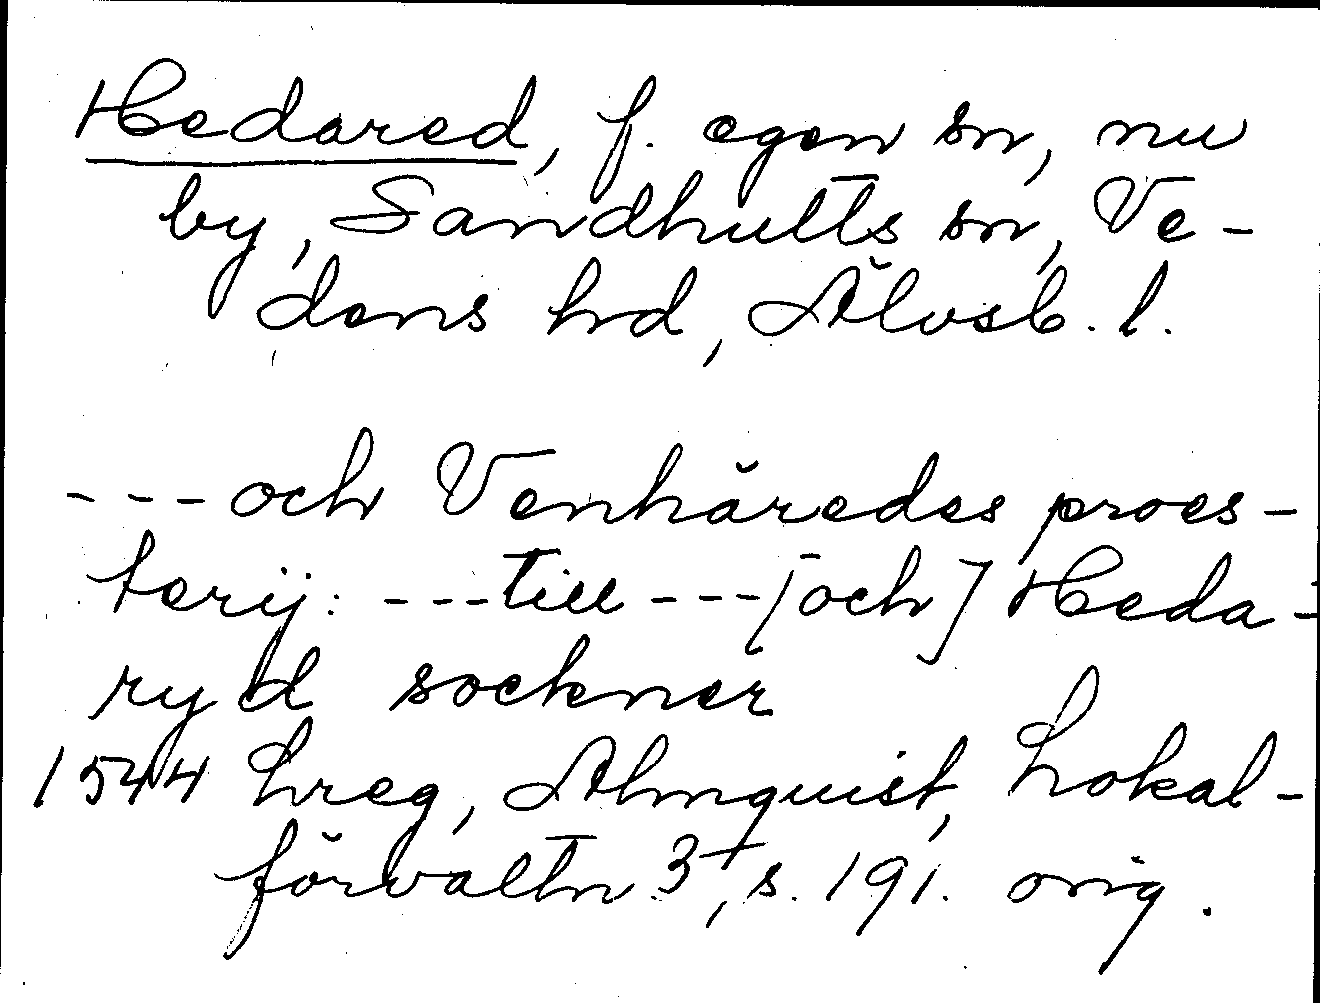 Hedared, f. egen sn, nu
by, Sandhults sn, Ve-
dens hrd, Älvsb. l.
---och Venhäredes proes-
terij: ---till---[och] Heda-
ryd sockner
1544 Lreg, Almquist, Lokal-
förvaltn 3, s. 191. orig.